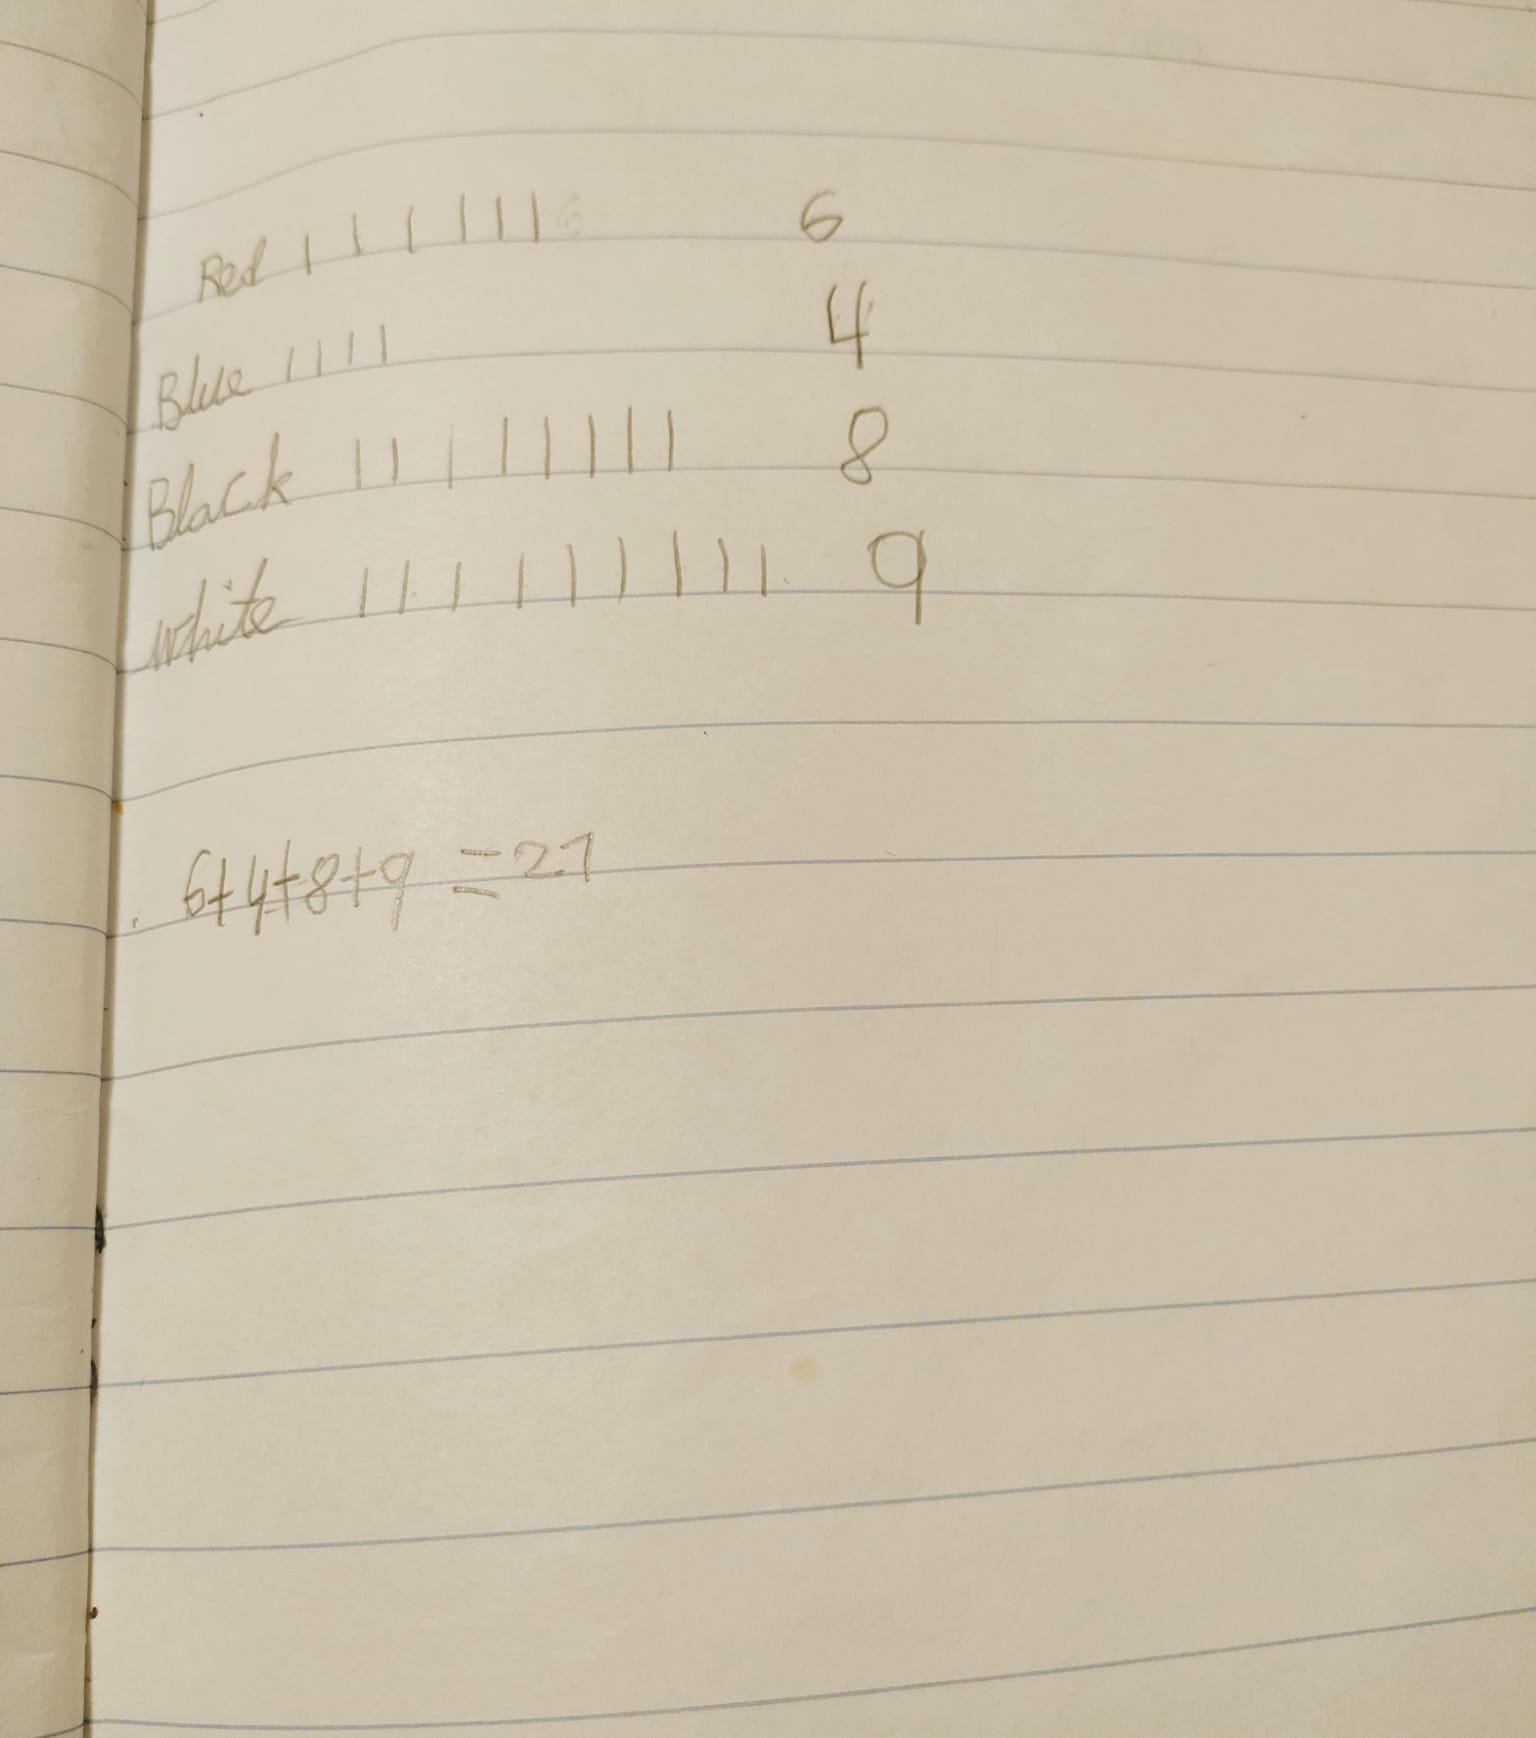 Red | | | | | | | 6
Blue | | | | 4
Black | | | | | | | | 8
white | | | | | | | | | 9
6+4+8+9 = 27